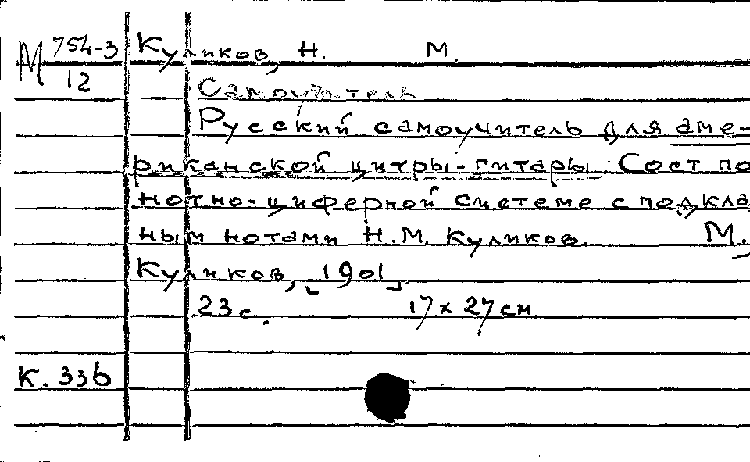 М 754-3 Куликов, Н. М.
12
Самоучитель
Русский самоучитель для аме-
риканской цитры-гитары. Сост по
нотно-циферной системе с подкла
ным нотами Н.М. Куликов. М.,
Куликов, [1901]
23 с. 17 x 27 см
К. 336